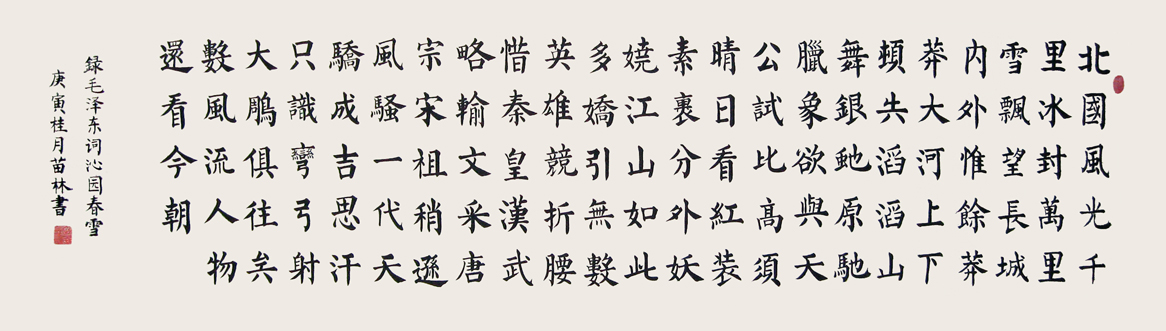 北國風光千
里冰封萬里
雪飄望長城
内外惟餘莽
莽大河上下
頓失滔滔山
舞銀虵原馳
臘象欲與天
公試比高須
晴日看紅装
素裹分外妖
嬈江山如此
多嬌引無數
英雄競折腰
惜秦皇漢武
略輸文采唐
宗宋祖稍遜
風騷一代天
驕成吉思汗
只識彎弓射
大鵰俱往矣
數風流人物
還看今朝
録毛泽东词沁园春雪
庚寅桂月苗林書